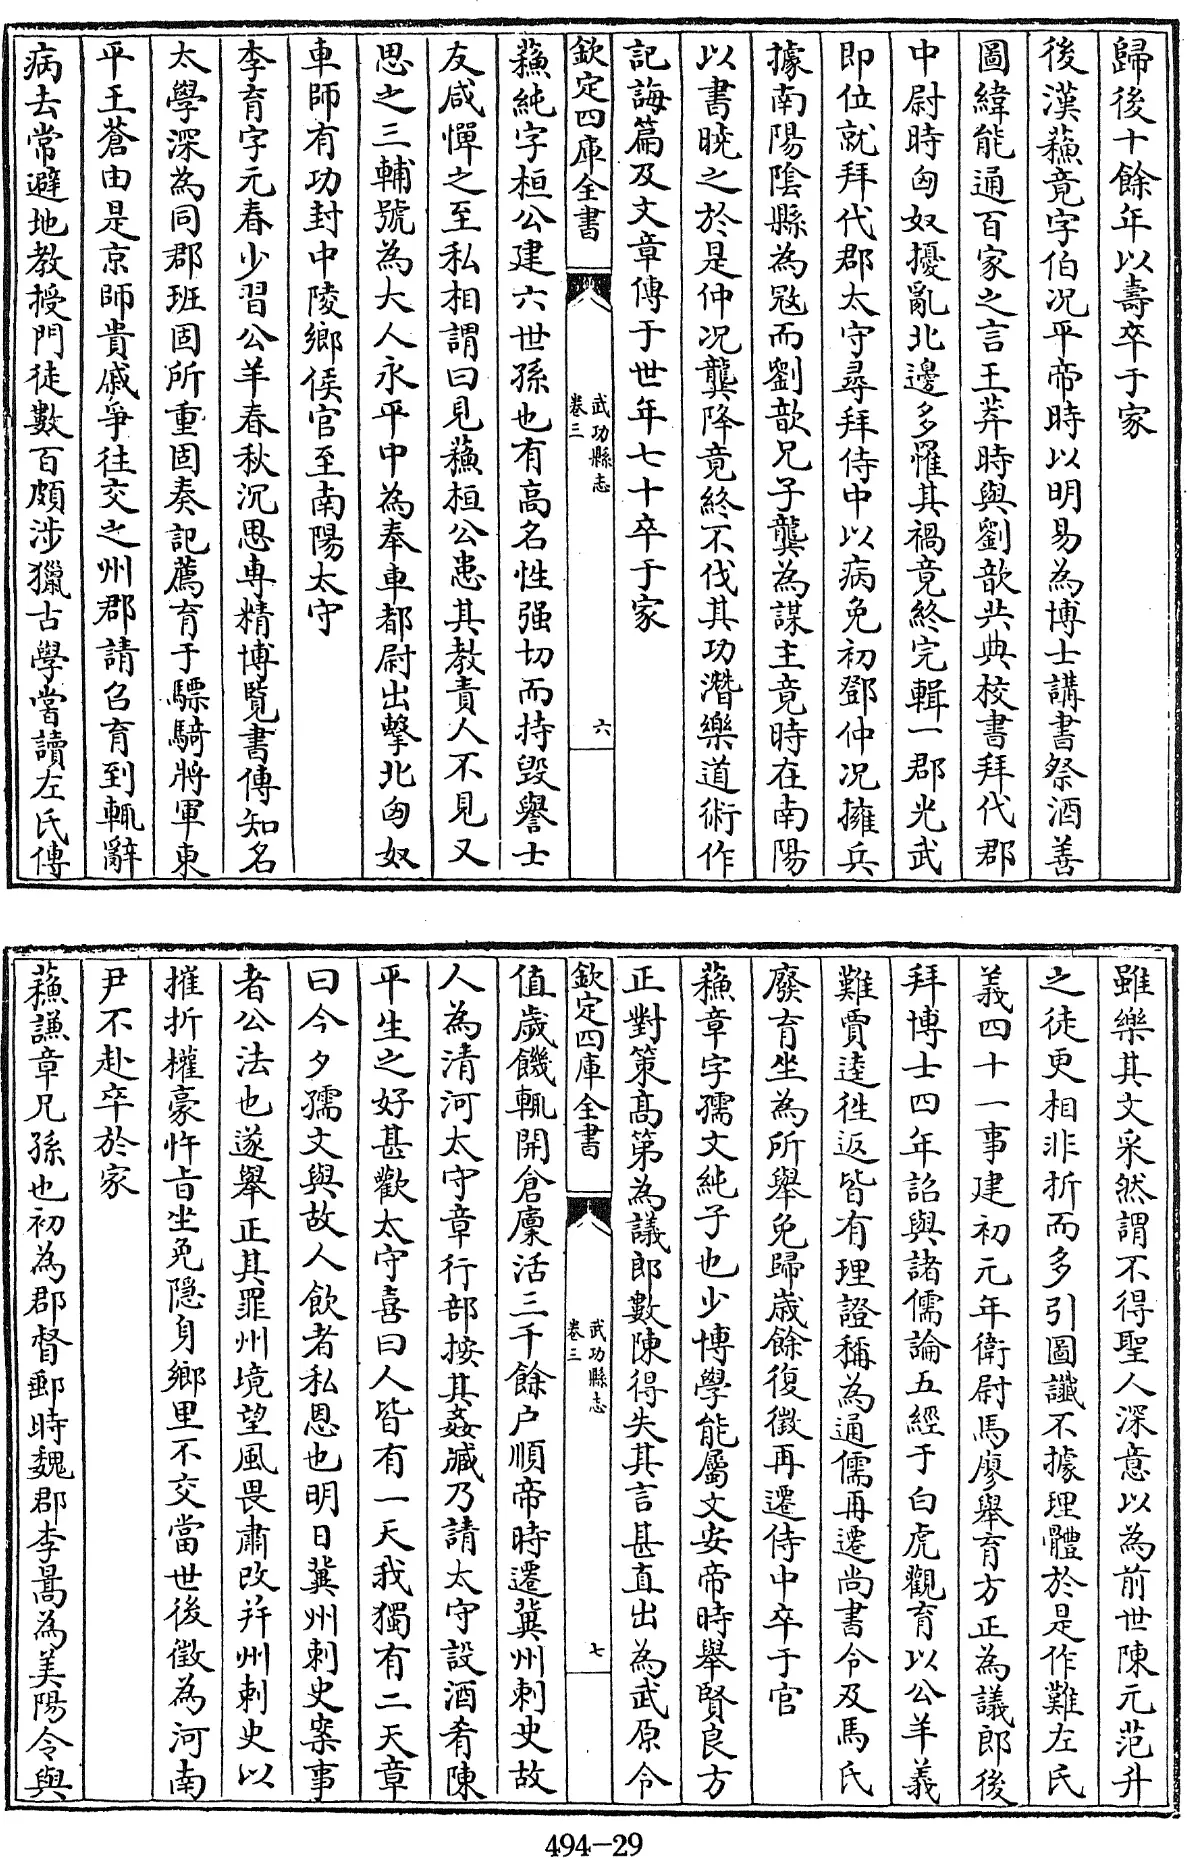 歸後十餘年以壽卒于家
後漢蘓竟字伯況平帝時以明易為博士講書祭酒善
圖緯能通百家之言王莽時與劉歆共典校書拜代郡
中尉時匈奴擾亂北邊多罹其禍竟終完輯一郡光武
即位就拜代郡太守尋拜侍中以病免初鄧仲況擁兵
據南陽陰縣為冦而劉歆兄子龔為謀主竟時在南陽
以書曉之於是仲況龔降竟終不伐其功潛樂道術作
記誨篇及文章傳于世年七十卒于家
欽定四庫全書
武功縣志
卷三
六
蘓純字桓公建六世孫也有高名性强切而持毀譽士
友咸憚之至私相謂曰見蘓桓公患其教責人不見又
思之三輔號為大人永平中為奉車都尉出擊北匈奴
車師有功封中陵鄉侯官至南陽太守
李育字元春少習公羊春秋沉思專精博覽書傳知名
太學深為同郡班固所重固奏記薦育于驃騎將軍東
平王蒼由是京師貴戚爭往交之州郡請召育到輒辭
病去常避地教授門徒數百頗涉獵古學嘗讀左氏傳
雖樂其文采然謂不得聖人深意以為前世陳元范升
之徒更相非折而多引圖讖不據理體於是作難左氏
義四十一事建初元年衛尉馬廖舉育方正為議郎後
拜博士四年詔與諸儒論五經于白虎觀育以公羊義
難賈逵徃返皆有理證稱為通儒再遷尚書令及馬氏
廢育坐為所舉免歸嵗餘復徵再遷侍中卒于官
蘓章字孺文純子也少博學能屬文安帝時舉賢良方
正對策高第為議郎數陳得失其言甚直出為武原令
欽定四庫全書
武功縣志
卷三
七
值歲饑輒開倉廩活三千餘户順帝時遷冀州刺史故
人為清河太守章行部按其姦贓乃請太守設酒肴陳
平生之好甚歡太守喜曰人皆有一天我獨有二天章
曰今夕孺文與故人飲者私恩也明日冀州刺史案事
者公法也遂舉正其罪州境望風畏肅改并州刺史以
摧折權豪忤旨坐免隠身鄉里不交當世後徵為河南
尹不赴卒於家
蘓謙章兄孫也初為郡督郵時魏郡李暠為美陽令與
494-29